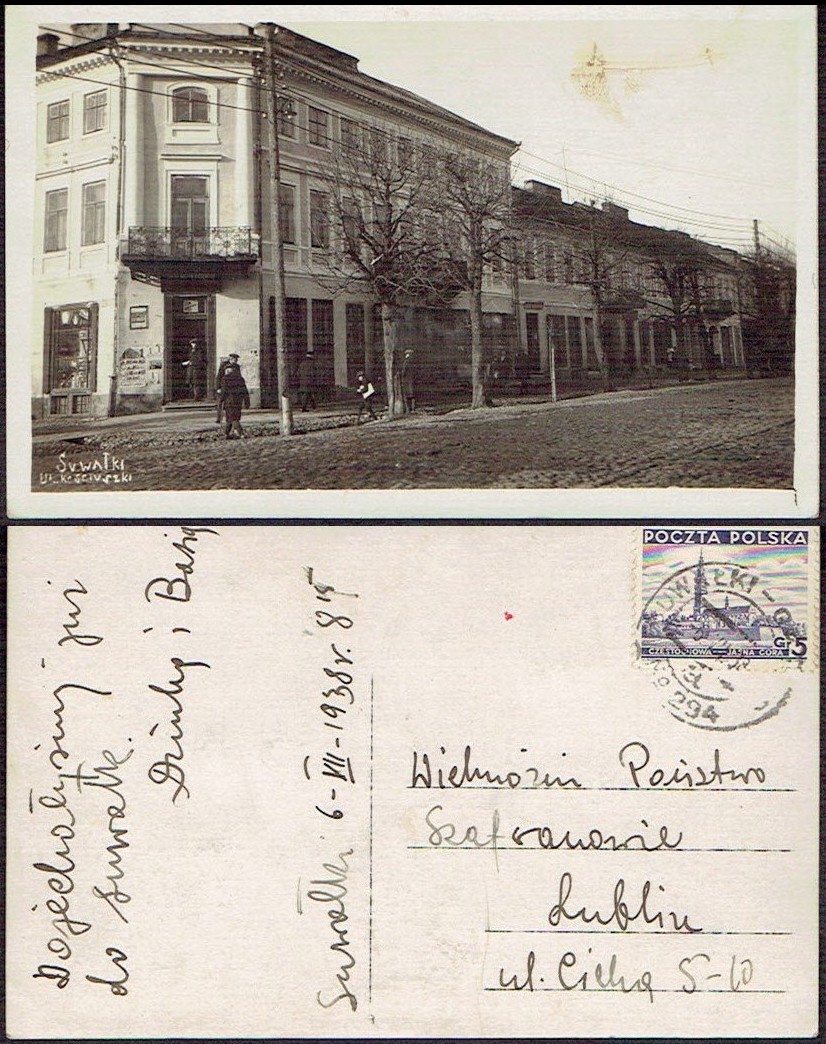 Suwałki
Ul. Kościuszki
POCZTA POLSKA
CZĘSTOCHOWA—JASNA GÓRA
Gr 5
SUWAŁKI
No 294
Dojechałyśmy już
do Suwałk.
i Basią
Suwałki 6-VII-1938r. 8 15
Wielmożni Państwo
Szafranowie
Lublin
ul. Cicha 5-10